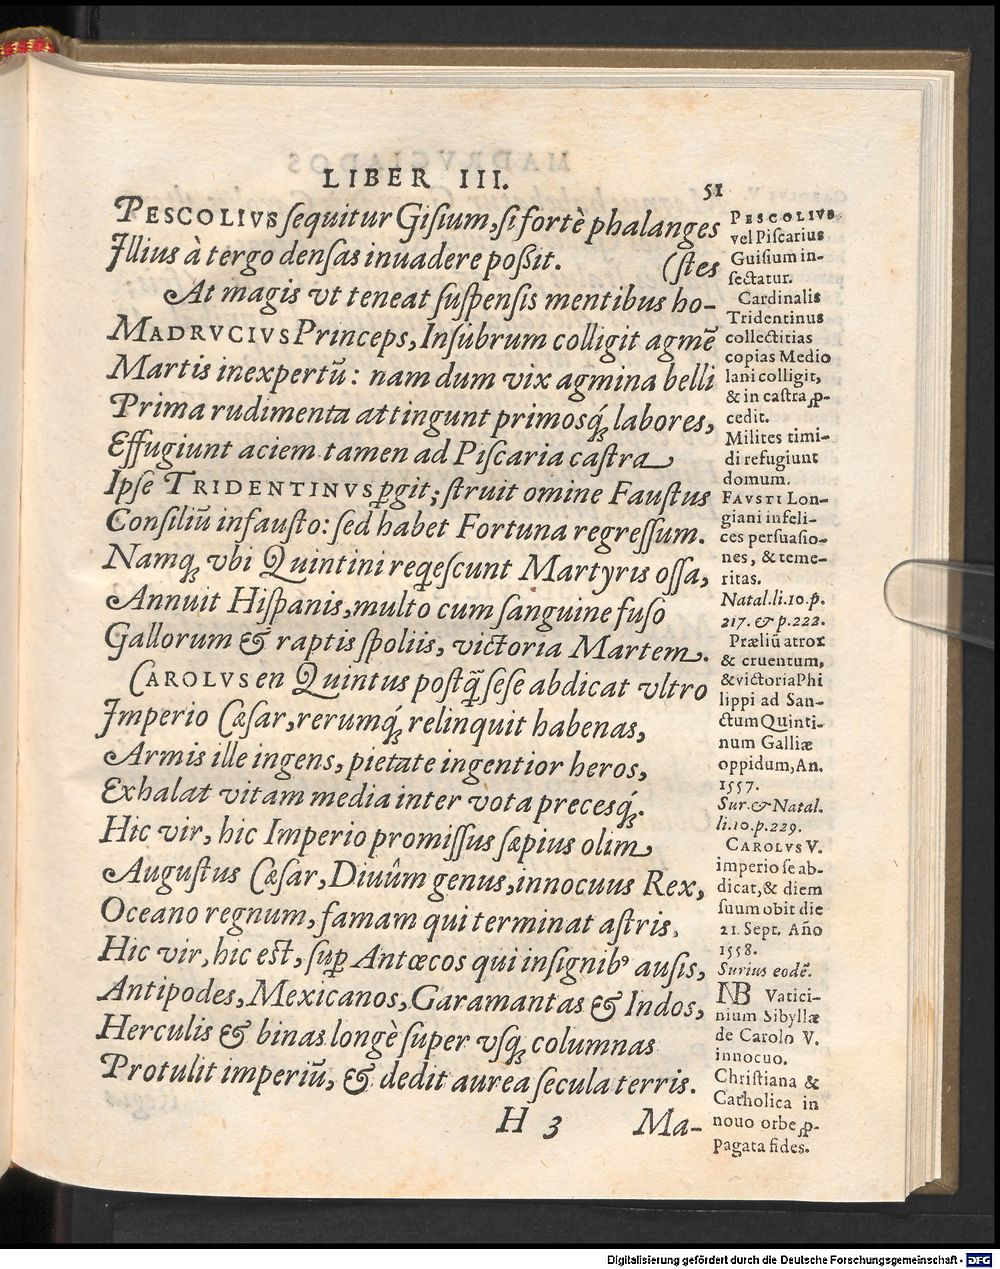 LIBER III.
51
PESCOLIVS sequitur Gisium, si fortè phalanges
Illius à tergo densas inuadere poßit. (stes
At magis vt teneat suspensis mentibus ho-
MADRVCIVS Princeps, Insubrum colligit agmẽ
Martis inexpertũ: nam dum vix agmina belli
Prima rudimenta attingunt primosq́; labores,
Effugiunt aciem tamen ad Piscaria castra
Ipse TRIDENTINVS ꝑgit; struit omine Faustus
Consiliũ infausto: sed habet Fortuna regressum.
Namq; vbi Quintini reqescunt Martyris ossa,
Annuit Hispanis, multo cum sanguine fuso
Gallorum & raptis spoliis, victoria Martem.
CAROLVS en Quintus postq̃ sese abdicat vltro
Imperio Cæsar, rerumq́; relinquit habenas,
Armis ille ingens, pietate ingentior heros,
Exhalat vitam media inter vota precesq́;.
Hic vir, hic Imperio promissus sæpius olim
Augustus Cæsar, Diuûm genus, innocuus Rex,
Oceano regnum, famam qui terminat astris,
Hic vir, hic est, suꝑ Antœcos qui insignibꝰ ausis,
Antipodes, Mexicanos, Garamantas & Indos,
Herculis & binas longè super vsq; columnas
Protulit imperiũ, & dedit aurea secula terris.
H 3 Ma-
PESCOLIVS
vel Piscarius
Guisium in-
sectatur.
Cardinalis
Tridentinus
collectitias
copias Medio
lani colligit,
& in castra ꝓ-
cedit.
Milites timi-
di refugiunt
domum.
FAVSTI Lon-
giani infeli-
ces persuasio-
nes, & teme-
ritas.
Natal. li. 10. p.
217. & p. 222.
Præliũ atrox
& cruentum,
& victoria Phi
lippi ad San-
ctum Quinti-
num Galliæ
oppidum, An.
1557.
Sur. & Natal.
li. 10. p. 229.
CAROLVS V.
imperio se ab-
dicat, & diem
suum obit die
21. Sept. Año
1558.
Surius eodẽ.
NB Vatici-
nium Sibyllæ
de Carolo V.
innocuo.
Christiana &
Catholica in
nouo orbe ꝓ-
pagata fides.
Digitalisierung gefördert durch die Deutsche Forschungsgemeinschaft - DFG